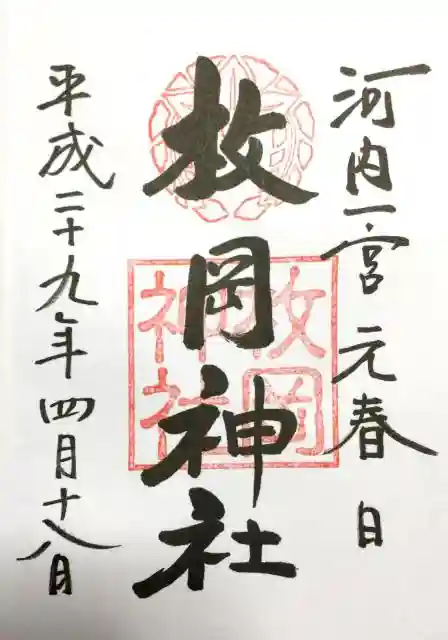 河内一宮 元春日
枚岡神社
枚岡
神社
平成二十九年四月十八日